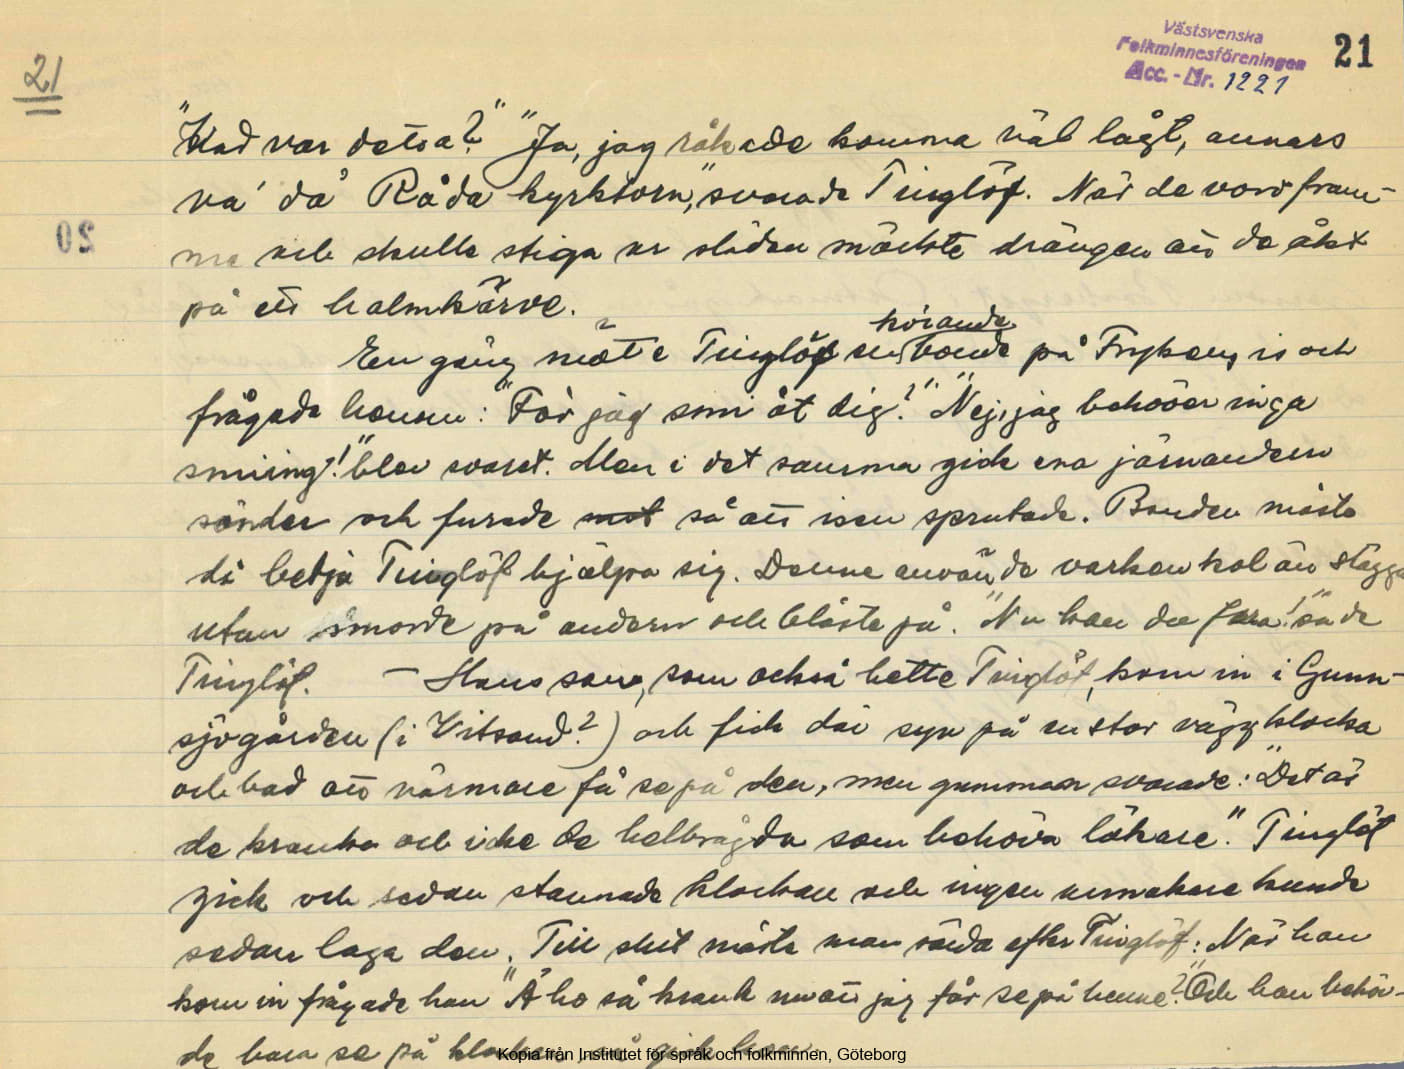 Västsvenska
Folkminnesföreningen
Acc. - Nr. 1221
21
21
"Had var detta?" "Ja, jag råkade komma väl lågt, annars
va' då Råda kyrktorn," svarade Tinglöf. När de voro fram-
me och skulle stiga ur släden märkte drängen att de åkt
på en halmkärve.
En gång mötte Tinglöf en körande bonde på Frykens is och
frågade honom: "Får jag smi åt dig?" "Nej, jag behöver inga
smiing!" blev svaret. Men i det samma gick ena järnandern
sönder och furade mot så att isen sprutade. Bonden måste
då betja Tinglöf hjälpa sig. Denne använde varken kol än stägga
utan smorde på andern och blåste på. "Nu kan du fara!" sade
Tinglöf. — Hans son, som också hette Tinglöf, kom in i Gunn-
sjögården (i Vitsand?) och fick där syn på en stor väggklocka
och bad att närmare få se på den, men gumman svarade: "Det är
de kranka och icke de helbrägda som behöva läkare". Tinglöf
gick och sedan stannade klockan och ingen urmakare kunde
sedan laga den. Till slut måste man sända efter Tinglöf: När han
kom in frågade han "Å ho så krank nu att jag får se på henne?" Och han behöv-
de bara se på klockan så gick hon.
20
Kopia från Institutet för språk och folkminnen, Göteborg